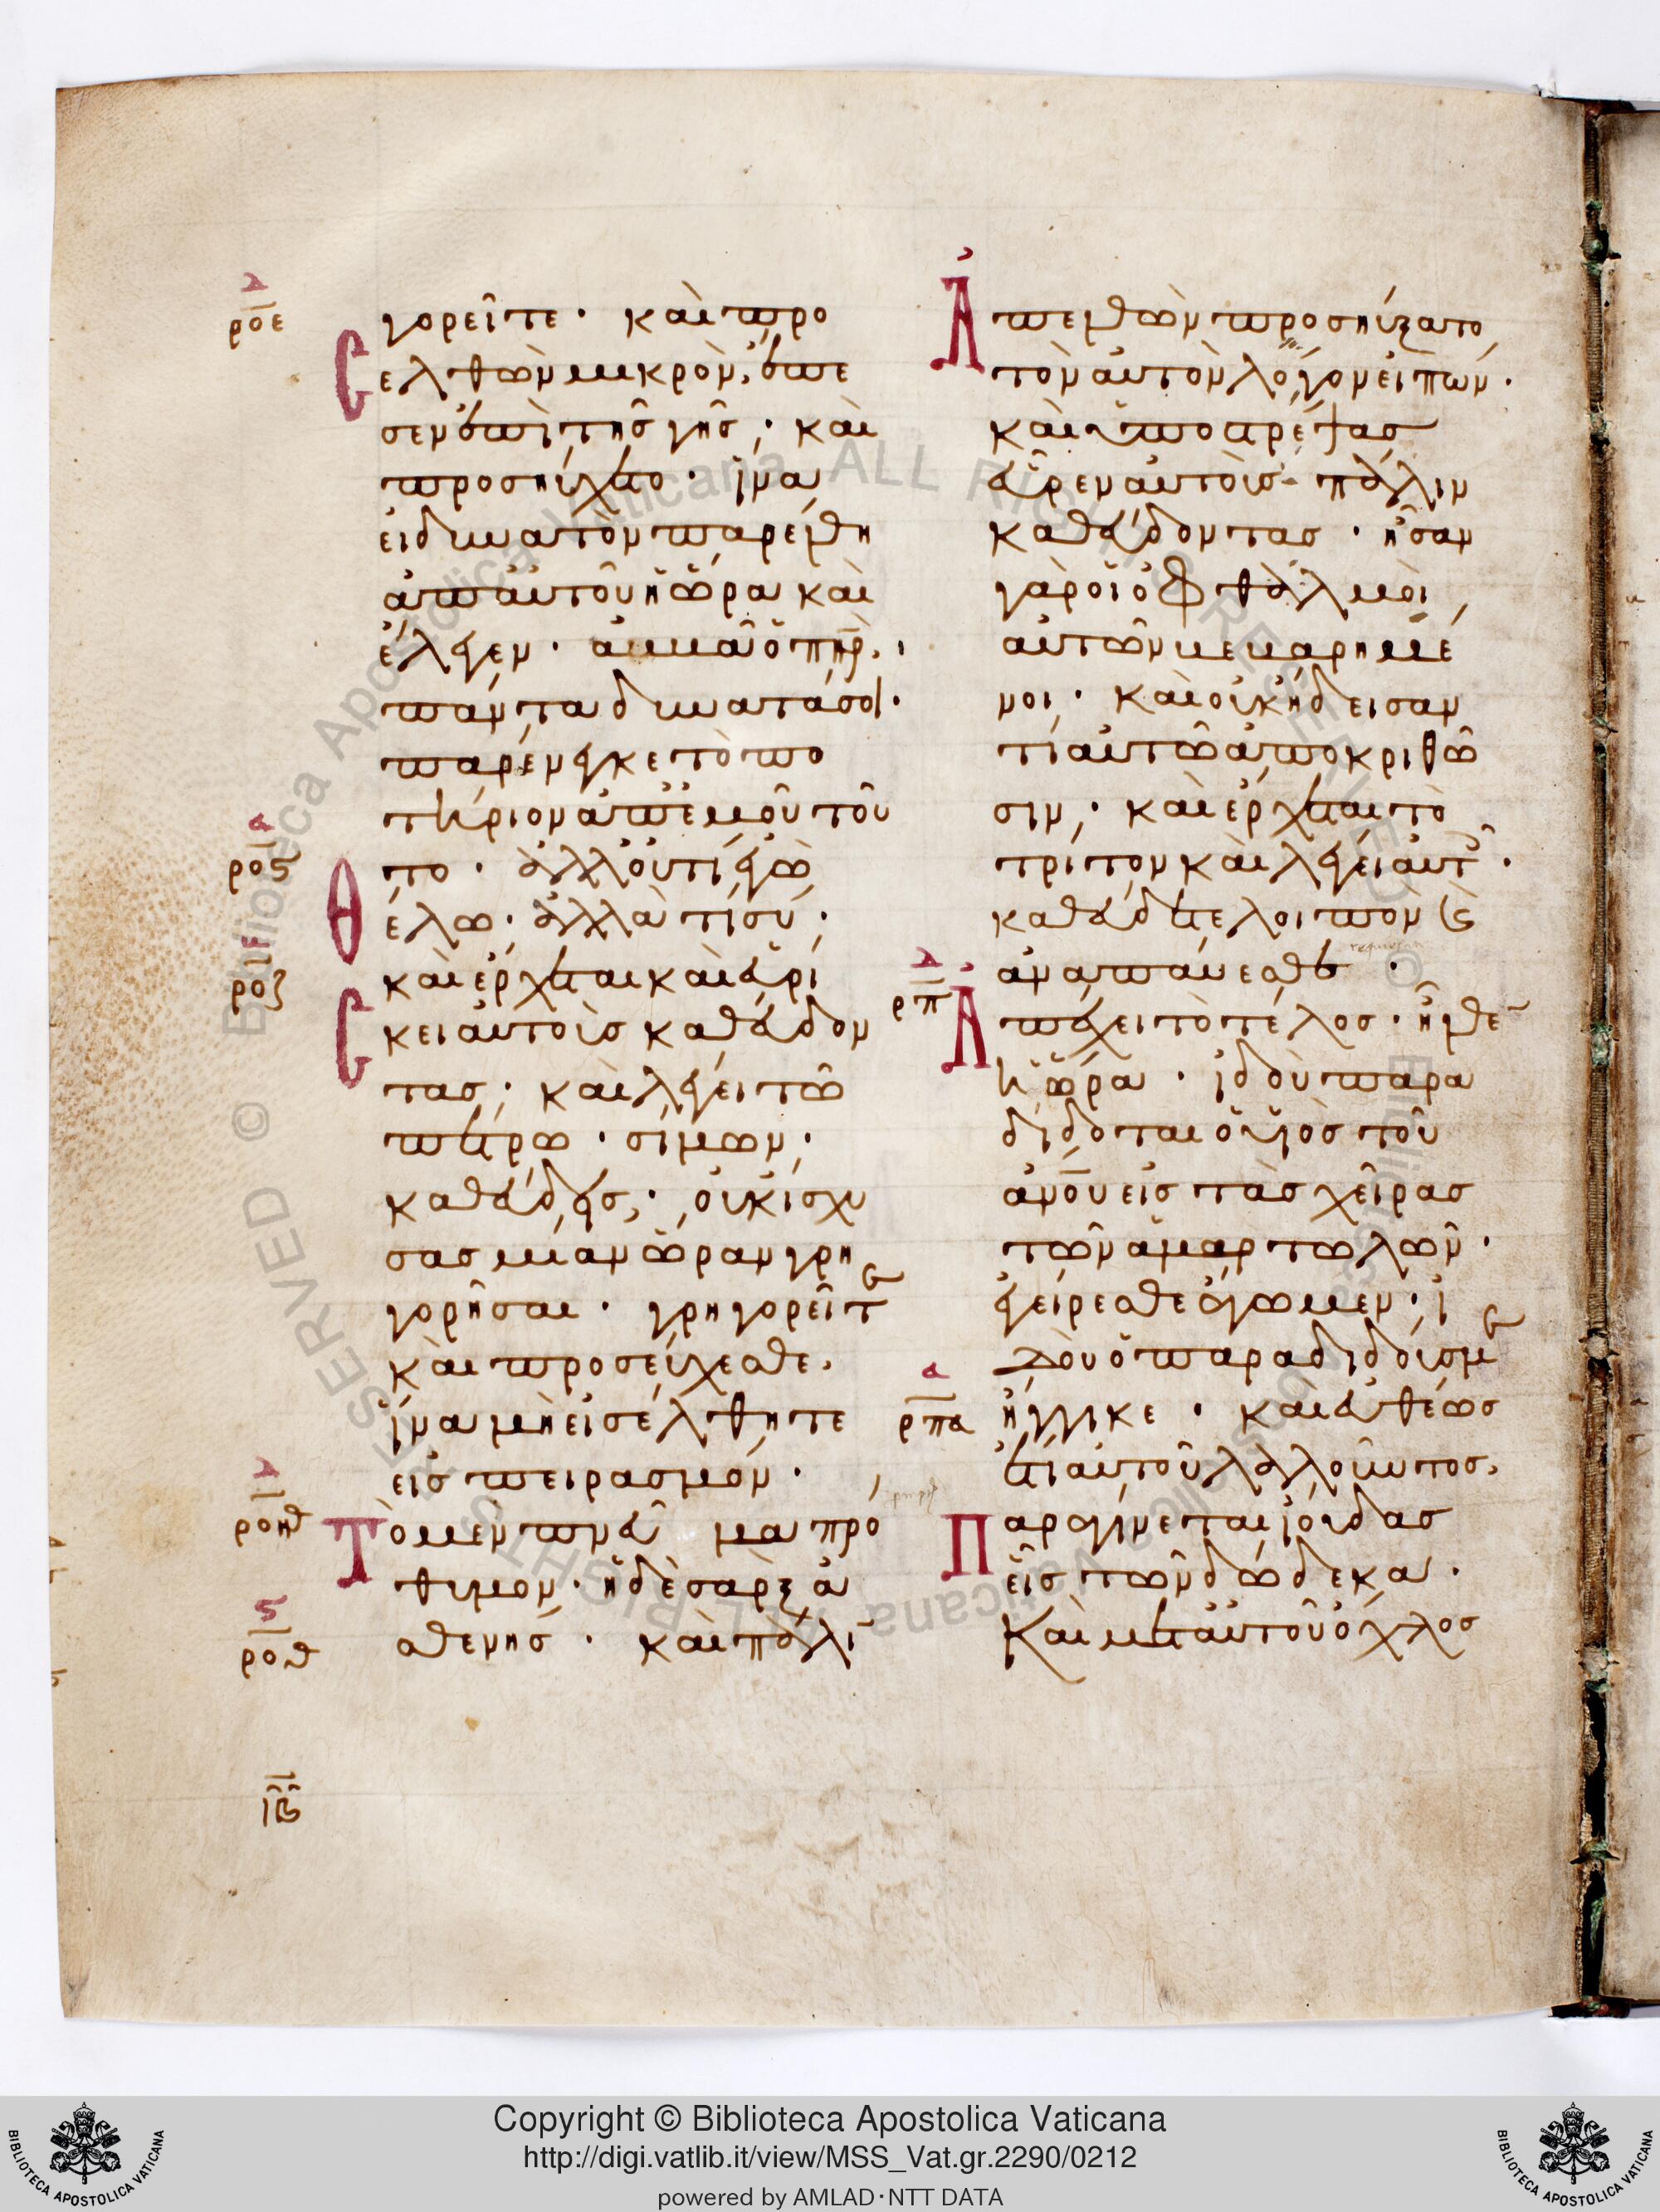 ροε
γορεῖτε· καὶ προ
ελθὼν μικρὸν, ἔπε
σεν ἐπὶ τῆς γῆς· καὶ
προσηύχετο· ἵνα
εἰ δυνατὸν παρέλθη
ἀπ αὐτοῦ ἡ ὥρα καὶ
ἔλεγεν· ἀββᾶ ὁ πη̅ρ·
πάντα δυνατά σοι·
παρένεγκε τὸ πο
τήριον ἀπ ἐμοῦ τοῦ
ροϛ
το· ἀλλ οὐ τί ἐγὼ
θέλω· ἀλλὰ τί σύ·
ροζ
καὶ ἔρχεται καὶ εὑρί
σκει αὐτοὺς καθεύδον
τας· καὶ λέγει τῶ
πέτρω· σίμων,
καθεύδεις· οὐκ ἴσχυ
σας μίαν ὥραν γρη
γορῆσαι· γρηγορεῖτε
καὶ προσεύχεσθε·
ἵνα μὴ εἰσέλθητε
εἰς πειρασμόν·
ροη
Τὸ μὲν πνεῦμα πρό
θυμον· ἡ δὲ σὰρξ ἀ
ροθ
σθενής· καὶ πάλι
Ἀπελθὼν προσηύξατο
τὸν αὐτὸν λόγον εἰπών·
καὶ ὑποστρέψας
εὗρεν αὐτοὺς πάλιν
καθεύδοντας· ἦσαν
γὰρ οἱ ὀφθαλμοὶ
αὐτῶν βεβαρημέ
νοι· καὶ οὐκ ἤδεισαν
τί αὐτῶ ἀποκριθῶ
σιν· καὶ ἔρχεται τὸ
τρίτον καὶ λέγει αὐτ·
καθεύδετε λοιπὸν καὶ
ἀναπαύεσθε·
ρπ
Ἀπέχει τὸ τέλος· ἦλθε
ἡ ὥρα· ἰδοὺ παρα
δίδοται ὁ υἱὸς τοῦ
ἀν̅ο̅υ εἰς τὰς χεῖρας
τῶν ἁμαρτωλῶν·
ἐγείρεσθε ἄγωμεν· ἰ
δοὺ ὁ παραδιδούς με
ρπα
ἤγγικε· καὶ εὐθέως
ἔτι αὐτοῦ λαλοῦντος,
Παραγίνεται ἰούδας
εἷς τῶν δώδεκα·
Καὶ μετ αὐτοῦ ὄχλος
Copyright © Biblioteca Apostolica Vaticana
http://digi.vatlib.it/view/MSS_Vat.gr.2290/0212
powered by AMLAD·NTT DATA
BIBLIOTECA APOSTOLICA VATICANA
BIBLIOTECA APOSTOLICA VATICANA